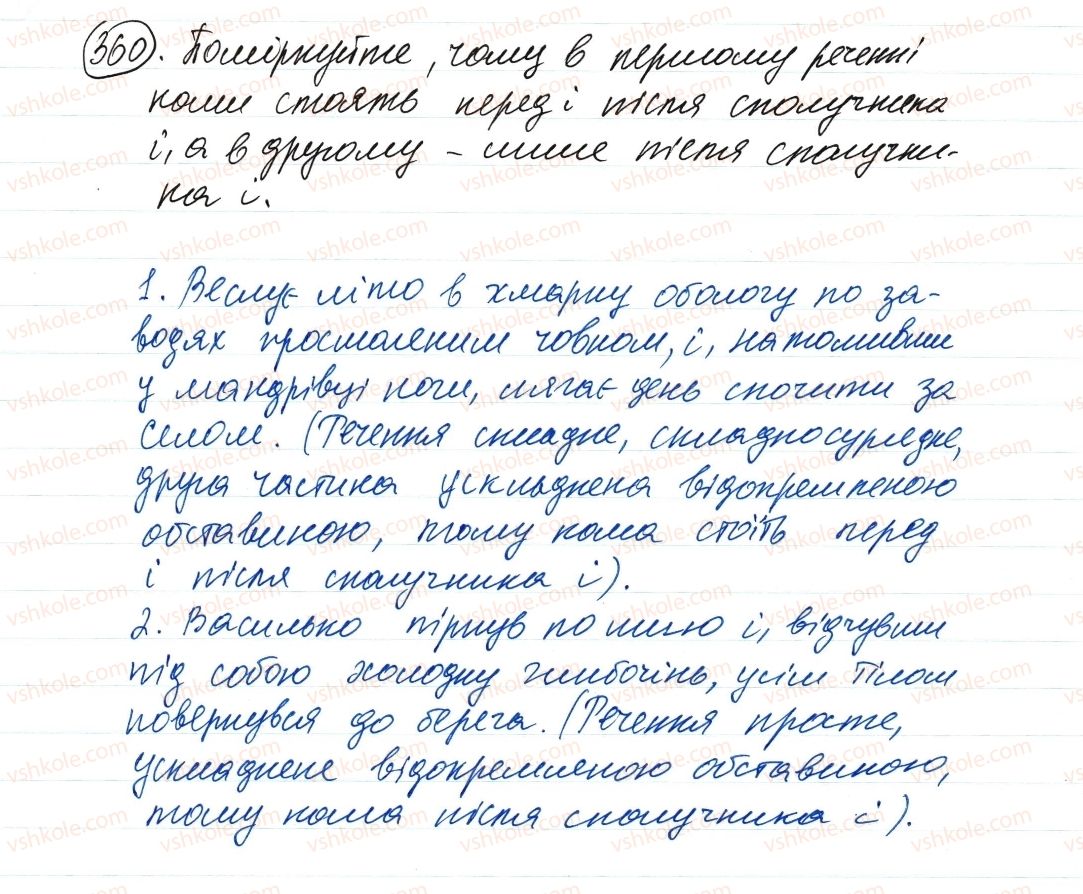 360. Поміркуйте, чому в першому реченні
коми стоять перед і після сполучника
і, а в другому - лише після сполучни-
ка і.
1. Веслує літо в хмарку обологу по за-
водях просмоленим човном, і, натомивши
у мандрівці ноги, лягає день спочити за
селом. (Речення складне, складносурядне,
друга частина ускладнена відокремленою
обставиною, тому кома стоїть перед
і після сполучника і).
2. Василько пірнув по шию і, відчувши
під собою холодну глибочінь, усім тілом
повернувся до берега. (Речення просте,
ускладнене відокремленою обставиною,
тому кома після сполучника і).